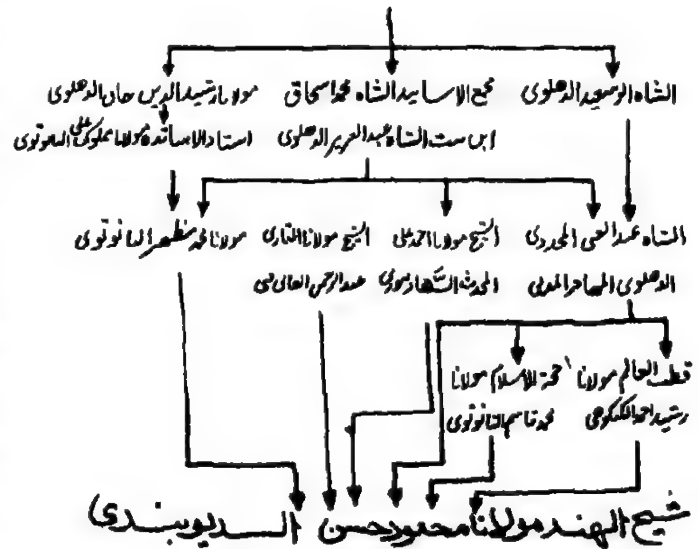 الشاه ابو سعيد الدهلوى
مجمع الاسانيد الشاه محمد اسحاق
ابن بنت الشاه عبد العزيز الدهلوى
مولانا رشيد الدين خان الدهلوى
استاذ الاساتذة مولانا مملوك على النانوتوى
الشاه عبد الغنى المجددى
الدهلوى المهاجر المدنى
الشيخ مولانا احمد على
المحدث السهارنپورى
الشيخ مولانا القارى
عبد الرحمن الفانى فتى
مولانا محمد مظهر النانوتوى
قطب العالم مولانا
رشيد احمد الگنگوهى
حجة الاسلام مولانا
محمد قاسم النانوتوى
شيخ الهند مولانا محمود حسن الديوبندى